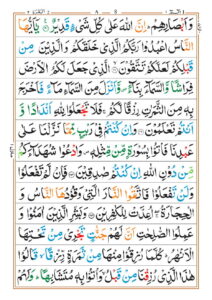 وَاَبْصَارِهِمْ ؕ اِنَّ اللّٰهَ عَلٰى كُلِّ شَىْءٍ قَدِيْرٌ ۟ يٰۤاَيُّهَا
النَّاسُ اعْبُدُوْا رَبَّكُمُ الَّذِىْ خَلَقَكُمْ وَالَّذِيْنَ مِنْ
قَبْلِكُمْ لَعَلَّكُمْ تَتَّقُوْنَ ۟ الَّذِىْ جَعَلَ لَكُمُ الْاَرْضَ
فِرَاشًا وَّالسَّمَآءَ بِنَآءً ۪ وَّاَنْزَلَ مِنَ السَّمَآءِ مَآءً فَاَخْرَجَ
بِهٖ مِنَ الثَّمَرٰتِ رِزْقًا لَّكُمْ ۚ فَلَا تَجْعَلُوْا لِلّٰهِ اَنْدَادًا وَّ
اَنْتُمْ تَعْلَمُوْنَ ۟ وَاِنْ كُنْتُمْ فِىْ رَيْبٍ مِّمَّا نَزَّلْنَا عَلٰى
عَبْدِنَا فَاْتُوْا بِسُوْرَةٍ مِّنْ مِّثْلِهٖ ۪ وَادْعُوْا شُهَدَآءَكُمْ
مِّنْ دُوْنِ اللّٰهِ اِنْ كُنْتُمْ صٰدِقِيْنَ ۟ فَاِنْ لَّمْ تَفْعَلُوْا
وَلَنْ تَفْعَلُوْا فَاتَّقُوا النَّارَ الَّتِىْ وَقُوْدُهَا النَّاسُ وَ
الْحِجَارَةُ ۖۚ اُعِدَّتْ لِلْكٰفِرِيْنَ ۟ وَبَشِّرِ الَّذِيْنَ اٰمَنُوْا وَ
عَمِلُوا الصّٰلِحٰتِ اَنَّ لَهُمْ جَنّٰتٍ تَجْرِىْ مِنْ تَحْتِهَا
الْاَنْهٰرُ ؕ كُلَّمَا رُزِقُوْا مِنْهَا مِنْ ثَمَرَةٍ رِّزْقًا ۙ قَالُوْا
هٰذَا الَّذِىْ رُزِقْنَا مِنْ قَبْلُ ۙ وَاُتُوْا بِهٖ مُتَشَابِهًا ؕ وَلَهُمْ